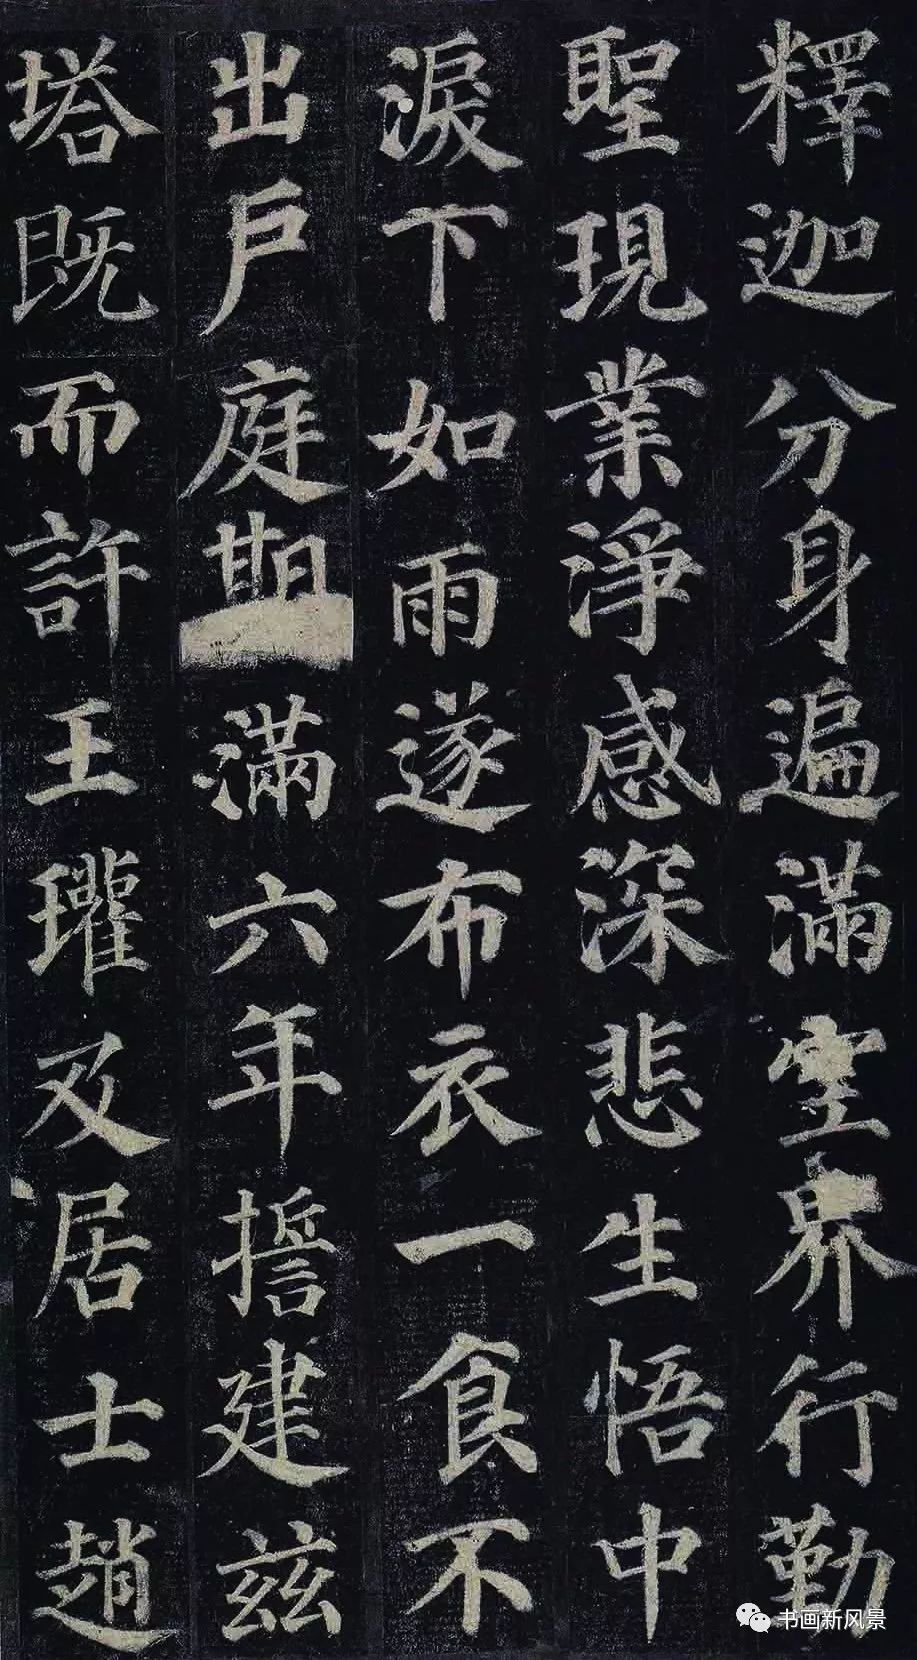 釋迦分身遍滿空界行勤
聖現業淨感深悲生悟中
淚下如雨遂布衣一食不
出戶庭期滿六年誓建兹
塔既而許王瓘及居士趙
书画新风景